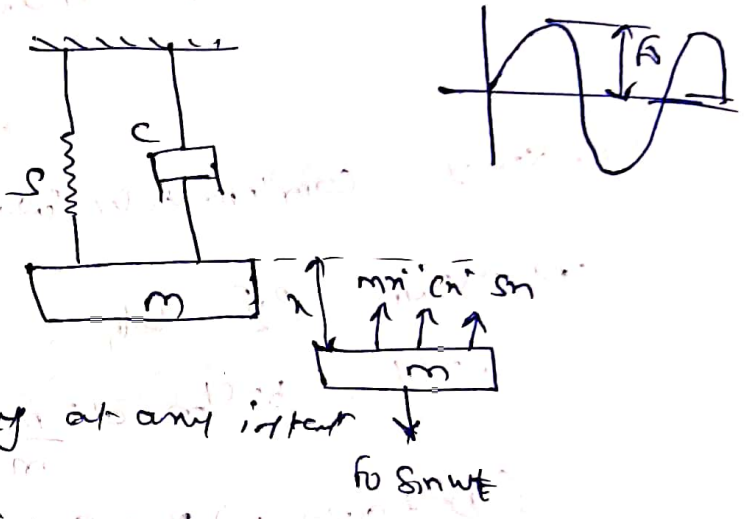 F₀
C
S
m
x
mẍ cẋ sx
m
y at any instant
F₀ Sin ωt